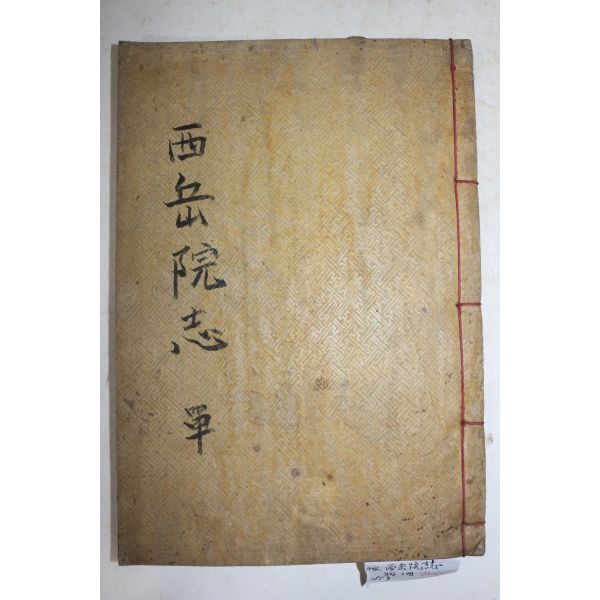 西岳院志 單
西岳院誌